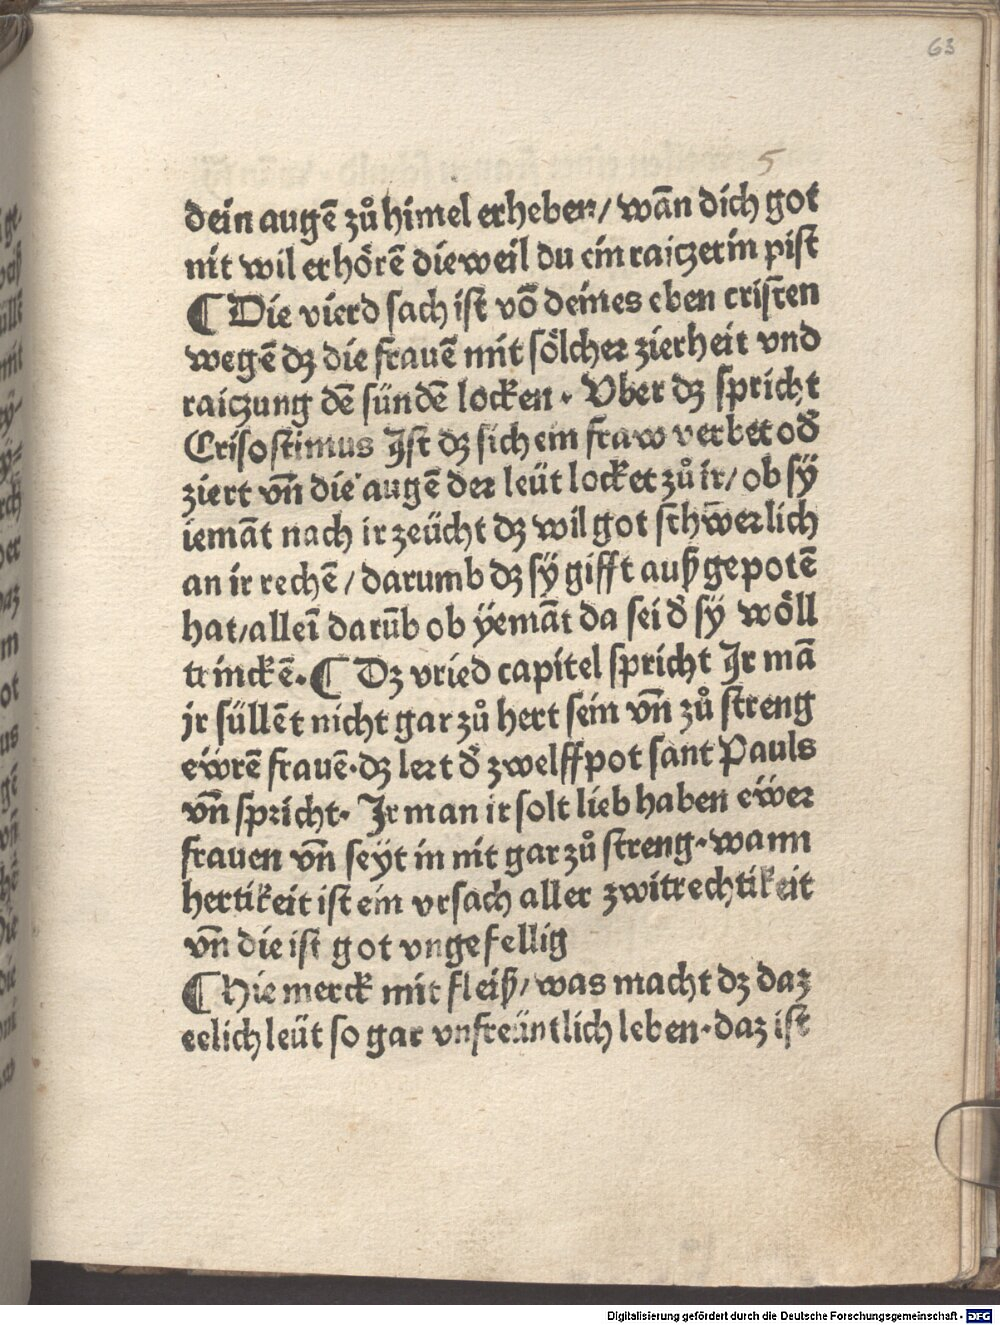 63
5
dein augẽ zů himel erheben/ wañ dich got
nit wil erhörẽ die weil du ein raiczerin pist
¶ Die vierd sach ist võ deines eben cristen
wegẽ dz die frauẽ mit sölcher zierheit vnd
raiczung dẽ sündẽ locken. Vber dz spricht
Crisostimus Ist dz sich ein fraw verbet od̉
ziert vñ die augẽ der leüt locket zů ir/ ob sÿ
iemãt nach ir zeücht dz wil got schwerlich
an ir rechẽ/ darumb dz sÿ gifft auß gepotẽ
hat/alleĩ darũb ob ÿemãt da sei d̉ sÿ wöll
trinckẽ. ¶ Dz vried capitel spricht Ir mã
jr süllẽt nicht gar zů hert sein vñ zů streng
ewrẽ frauẽ. dz lert d̉ zwelffpot sant Pauls
vñ spricht. Ir man ir solt lieb haben ewer
frauen vñ seÿt in nit gar zů streng. wann
hertikeit ist ein vrsach aller zwitrechtikeit
vñ die ist got vngefellig
¶ Hie merck mit fleiß/ was macht dz daz
eelich leüt so gar vnfreüntlich leben. daz ist
Digitalisierung gefördert durch die Deutsche Forschungsgemeinschaft - DFG